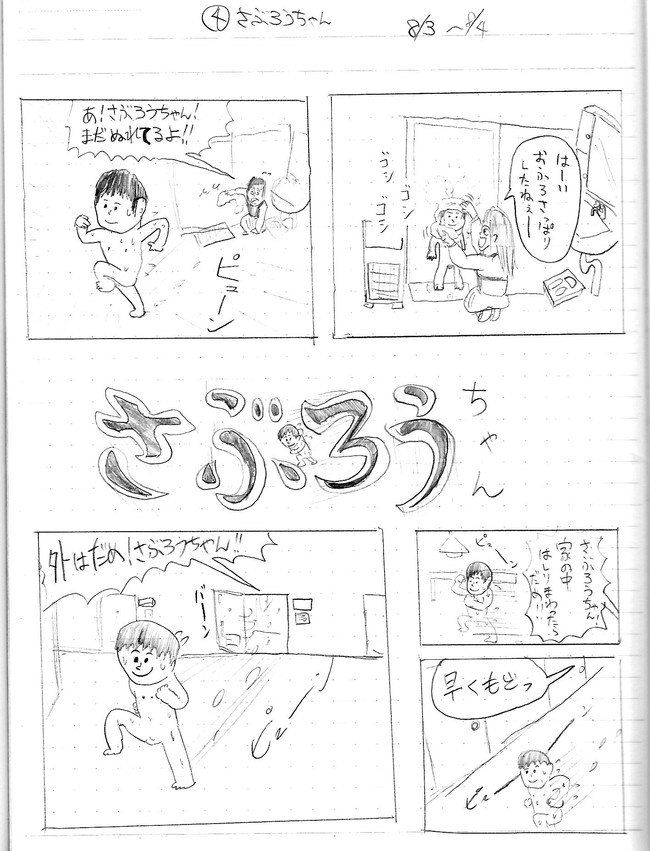 ④ さぶろうちゃん
8/3 〜 8/4
はーい
おふろさっぱり
したねぇー
ゴシ
ゴシ
ゴシ
あ!さぶろうちゃん!
まだぬれてるよ!!
ピューン
さぶろう
ちゃん
さぶろうちゃん!
家の中
はしりまわったら
だめ!!
ピューン
早くもどっ
ピュー
外はだめ!さぶろうちゃん!!
バーン
ピューン